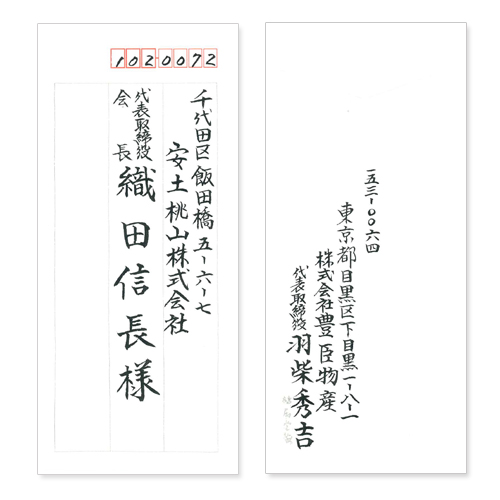 1020072
千代田区飯田橋五-六-七
安土桃山株式会社
代表取締役
会長
織田信長様
一五三-〇〇六四
東京都目黒区下目黒一-八-一
株式会社豊臣物産
代表取締役 羽柴秀吉